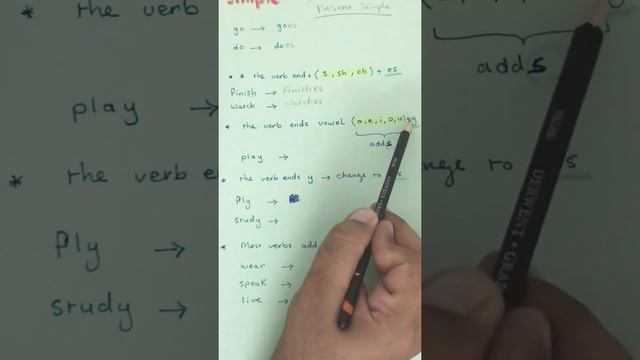 Simple
Present Simple
go → goes
do → does
* * the verb ends (s, sh, ch) + es
finish → finishes
watch → watches
* the verb ends vowel (a, e, i, o, u) + y
adds
play →
* the verb ends y → change to
Ply →
study →
* Most verbs add
wear →
speak →
live →
DERWENT